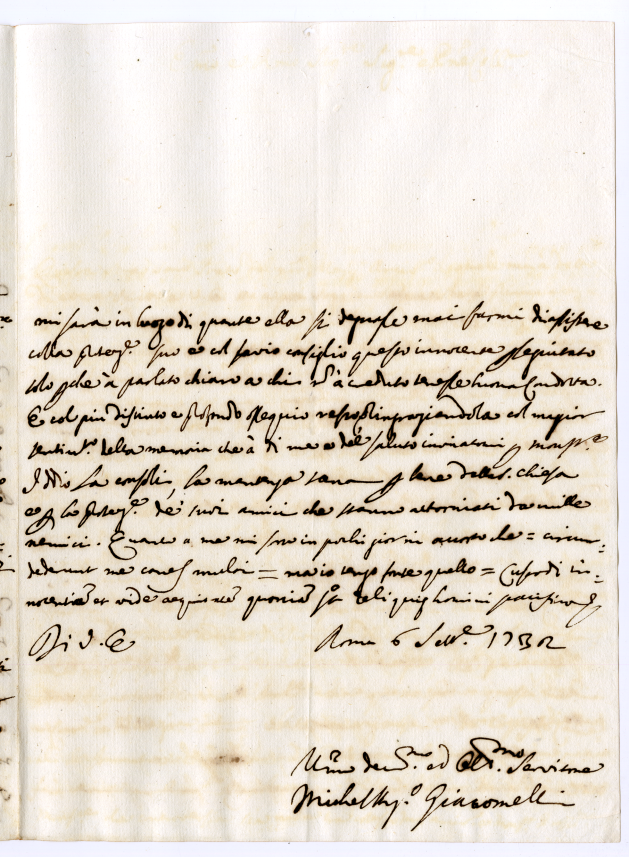 mi sarà in luogo di quante ella si degnasse mai farmi di assistere
colla proteg.e sue e col savio consiglio questo innocente pseguitato
solo pche à parlato chiaro a chi à creduto tenesse buona Condotta.
E col più distinto e profondo ossequio col magior
sentim.to della memoria che à di me e del saluto inviatomi p mons.re
Iddio la consoli, la mantenga sana p bene della s. chiesa
e p la proteg.e de' suoi amici che stanno attorniati da mille
nemici. Quanto a me mi sono in pochi giorni = circum=
dederunt me canes multi = ma io tengo forte quello = Custodi in=
nocentiã et vide aequitatẽ quoniã st reliquiae homini pacifico
Di V. E
Roma 6 Sett.e 1732
Um.o dev.mo ed Obl.mo Servitore
Michelang.o Giacomelli